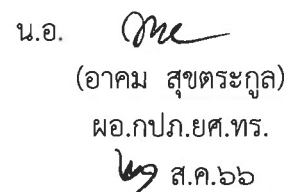 น.อ.
(อาคม สุขตระกูล)
ผอ.กปภ.ยศ.ทร.
ส.ค.๖๖